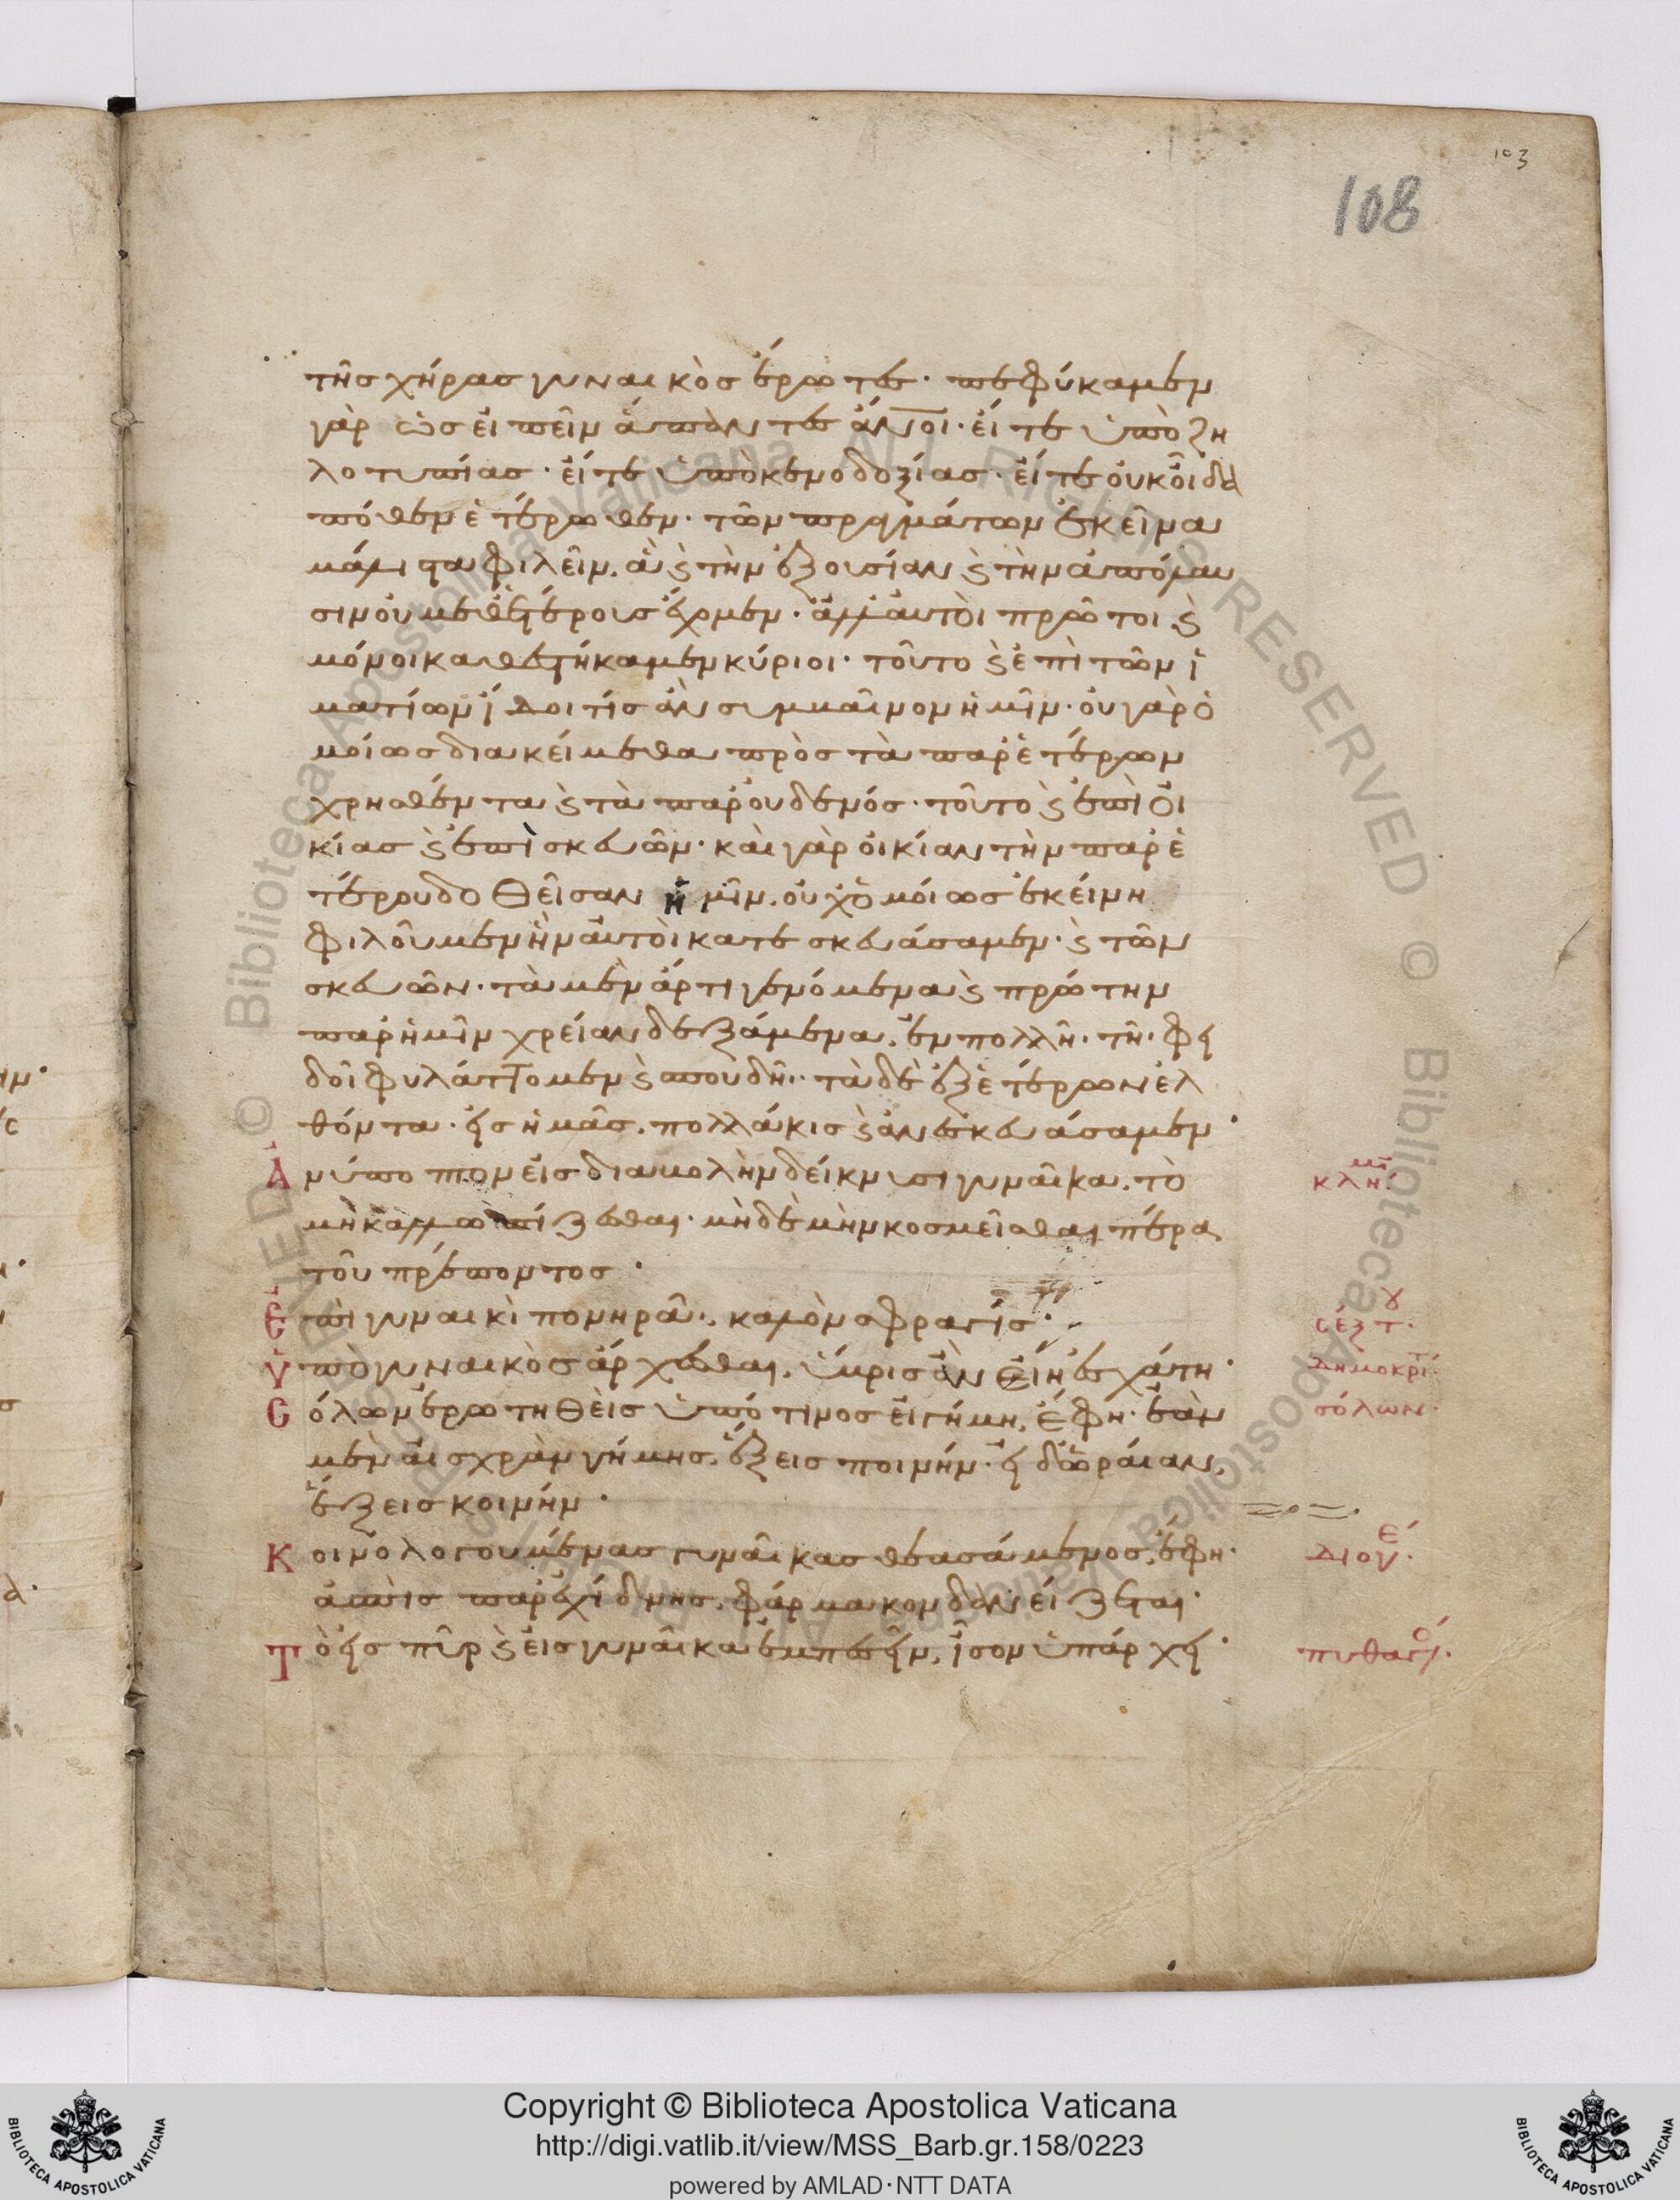 103
108
τῆς χήρας γυναικὸς ἔρωτες· πεφύκαμεν
γὰρ ὡς εἰπεῖν ἅπαντες ἄνοι· εἴτε ὑπὸ ζη
λοτυπίας· εἴτε ὑπὸ κενοδοξίας· εἴτε οὐκ οἶδα
πόθεν ἑτέρωθεν· τῶν πραγμάτων ἐκεῖνα
μάλιστα φιλεῖν, ὧν καὶ τὴν ἐξουσίαν καὶ τὴν ἀπόλαυ
σιν οὐ μεθ' ἑτέρους ἔχομεν· ἀλλ' αὐτοὶ πρῶτοι καὶ
μόνοι καθεστήκαμεν κύριοι· τοῦτο καὶ ἐπὶ τῶν ἱ
ματίων ἴδοι τίς ἂν συμβαῖνον ἡμῖν· οὐ γὰρ ὁ
μοίως διακείμεθα πρὸς τὰ παρ' ἑτέρων
χρησθέντα καὶ τὰ παρ' οὐδενός· τοῦτο καὶ ἐπὶ οἰ
κίας καὶ ἐπὶ σκευῶν· καὶ γὰρ οἰκίαν τὴν παρ' ἑ
τέρου δοθεῖσαν ἡμῖν, οὐχ ὁμοίως ἐκείνη
φιλοῦμεν ἣν αὐτοὶ κατεσκευάσαμεν· καὶ τῶν
σκευῶν· τὰ μὲν ἄρτι γενόμενα καὶ πρώτην
παρ' ἡμῖν χρείαν δεξάμενα, ἐν πολλῆ· τῆ· φει
δοῖ φυλάττομεν καὶ σπουδῆ· τὰ δὲ ἐξ ἑτέρων ἐλ
θόντα· εἰς ἡμᾶς, πολλάκις καὶ ἀνεσκευάσαμεν·
Ἀνύποπτον εἰς διαβολὴν δείκνυσι γυναῖκα, τὸ
μὴ καλλωπίζεσθαι· μηδὲ μὴν κοσμεῖσθαι πέρα
τοῦ πρέποντος·
Ἐπὶ γυναικὶ πονηρᾶ·, καλὸν σφραγίς·
Ὑπὸ γυναικὸς ἄρχεσθαι, ὕβρις ἂν εἴη ἐσχάτη·
Σόλων ἐρωτηθεὶς ὑπό τινος εἰ γήμη, ἔφη· ἐὰν
μὲν αἰσχρὰν γήμης, ἕξεις ποινήν· εἰ δ' ὡραίαν,
ἕξεις κοινήν·
Κοινολογουμένας γυναῖκας θεασάμενος, ἔφη·
ἀσπὶς παρ' ἐχίδνης, φάρμακον δανείζεται·
Τὸ εἰς πῦρ καὶ εἰς γυναῖκα ἐμπεσεῖν, ἴσον ὑπάρχει·
κλήμ·
σέξτου·
Δημοκρίτ·
σόλων·
Διογέ·
πυθαγό·
Copyright © Biblioteca Apostolica Vaticana
http://digi.vatlib.it/view/MSS_Barb.gr.158/0223
powered by AMLAD·NTT DATA